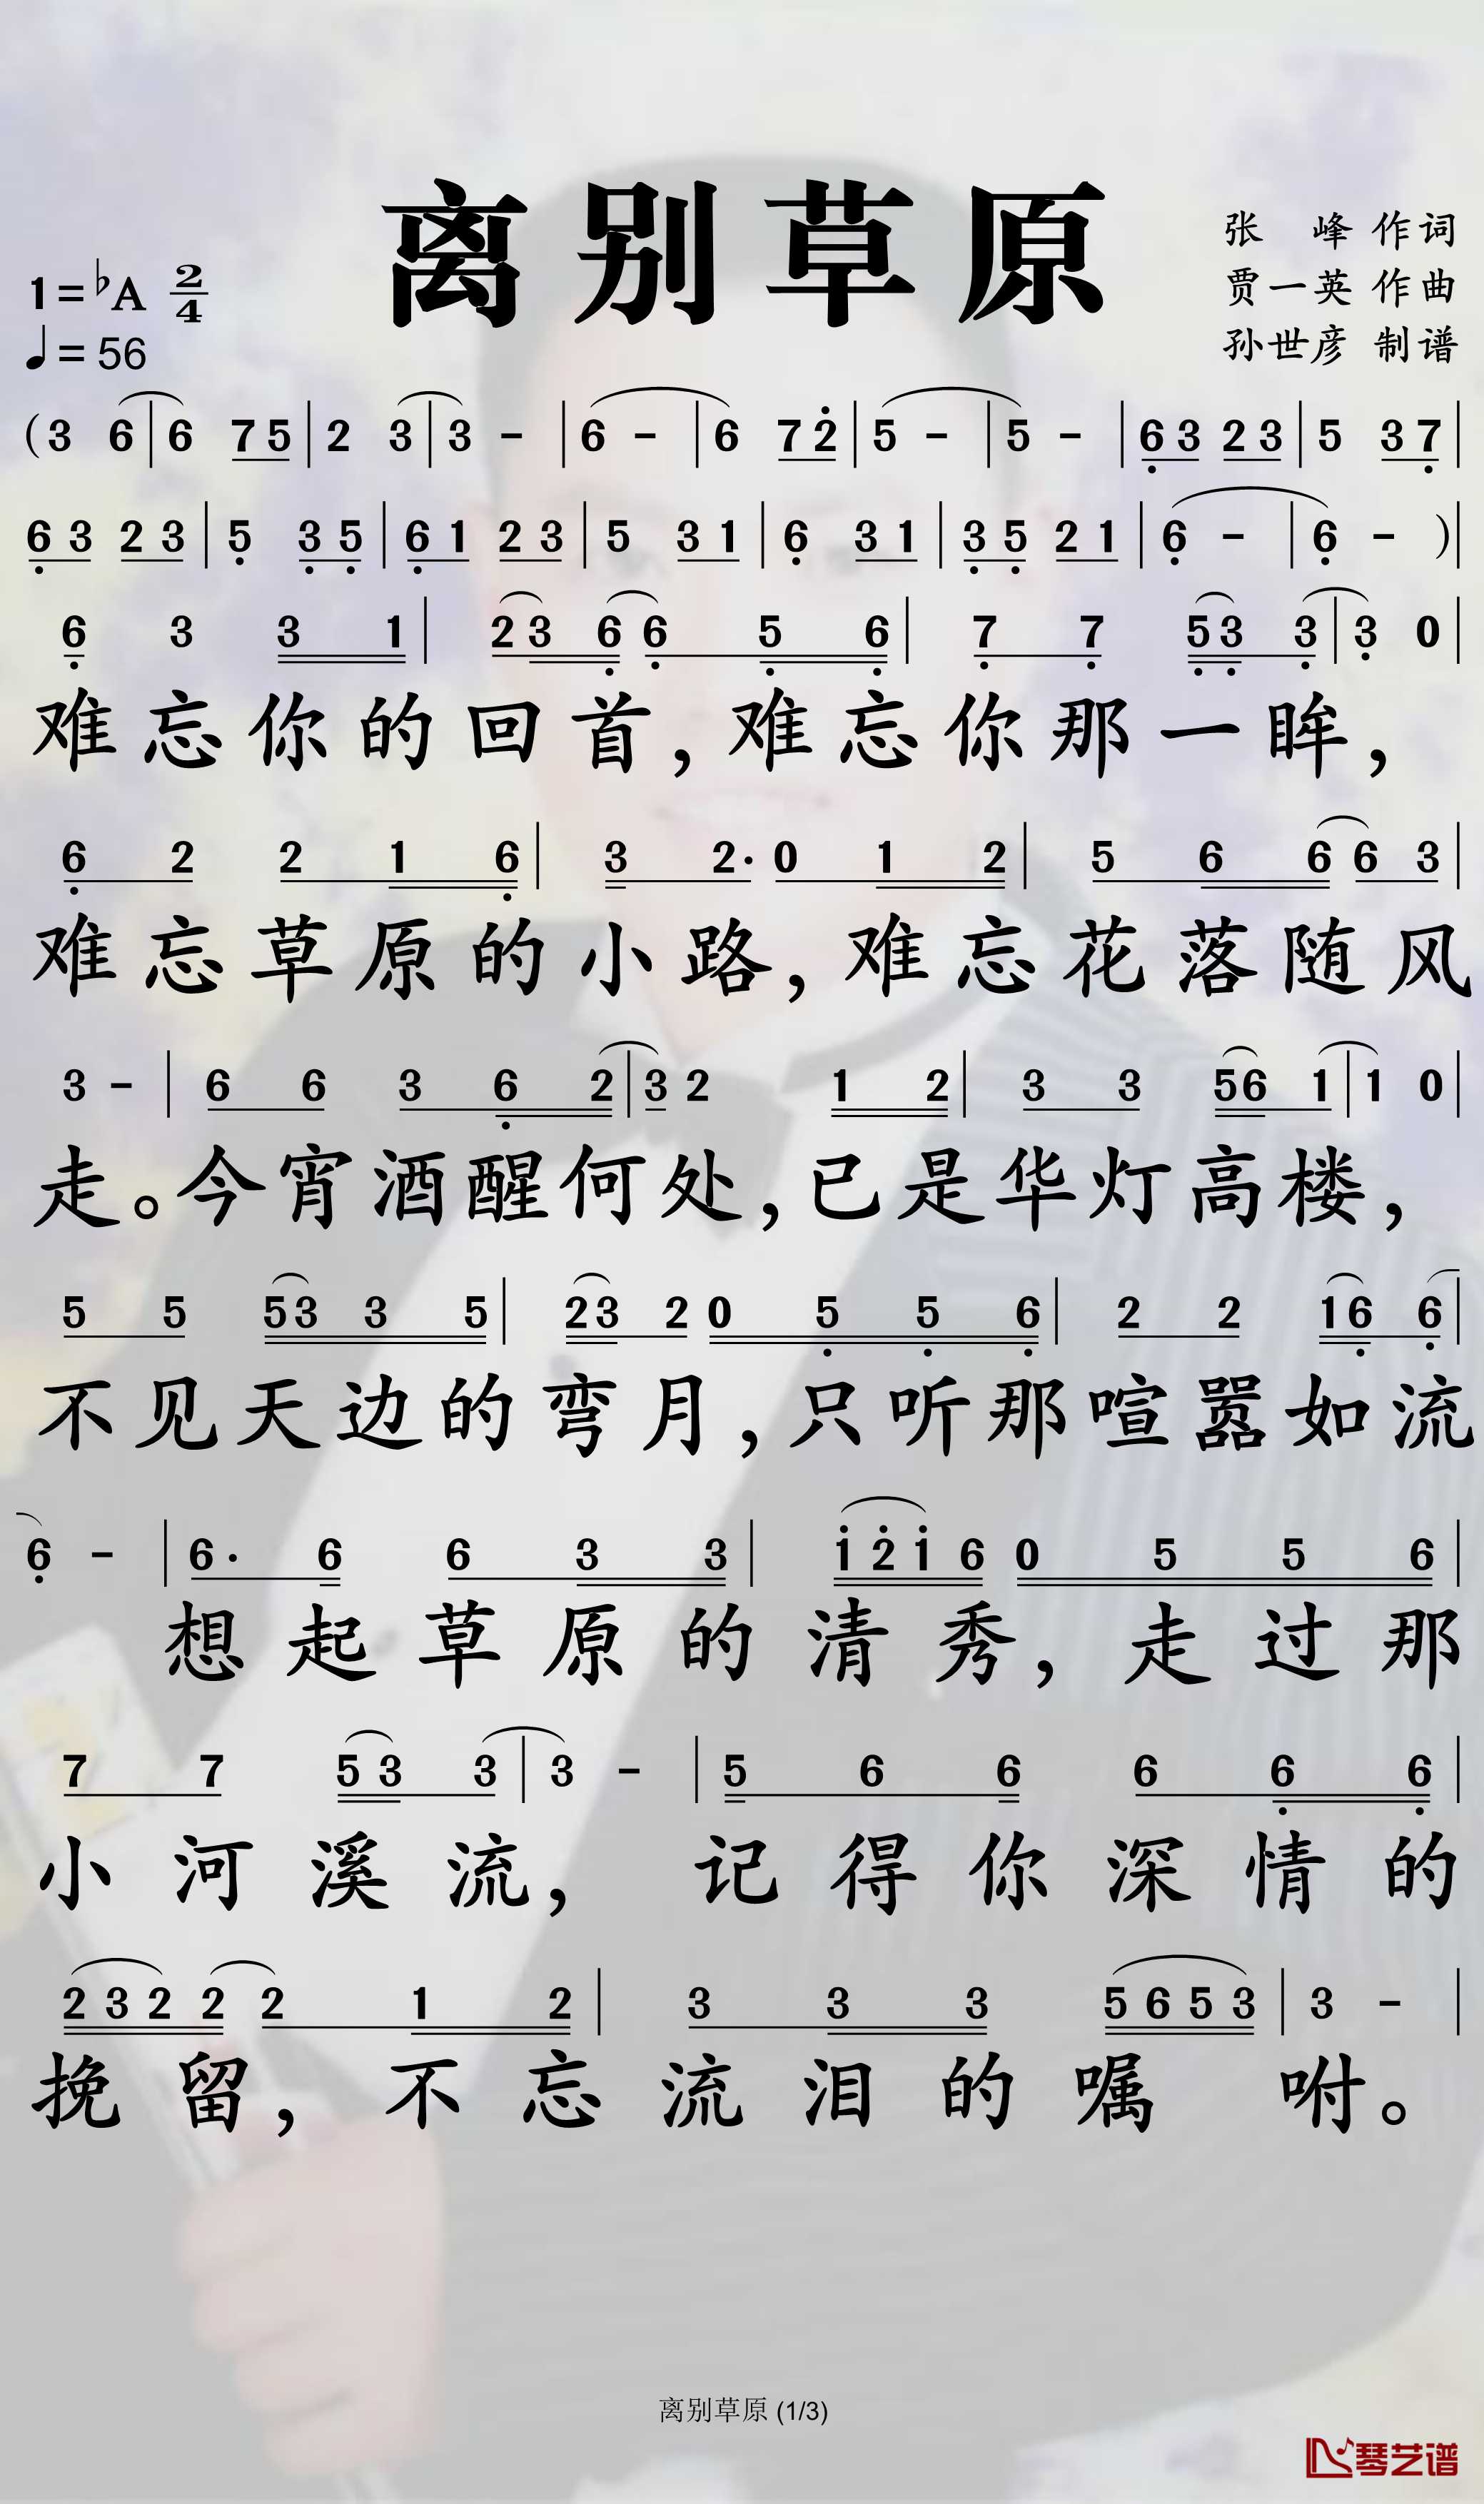 离别草原
张 峰 作词
1=♭A 2/4
贾一英 作曲
♩=56
孙世彦 制谱
(3 6|6 75|2 3|3 -|6 -|6 72̇|5 -|5 -|6̣3 23|5 37̣|
6̣3 23|5̣ 3̣5̣|6̣1 23|5 31|6̣ 31|3̣5̣ 21|6̣ -|6̣ -)|
6̣ 3 3 1|23 6̣ 6̣ 5̣ 6̣|7̣ 7̣ 5̣3̣ 3̣|3̣ 0|
难忘你的回首，难忘你那一眸，
6̣ 2 2 1 6̣|3 2· 0 1 2|5 6 6 6 3|
难忘草原的小路，难忘花落随风
3 -|6 6 3 6̣ 2|3 2 1 2|3 3 56 1|1 0|
走。今宵酒醒何处，已是华灯高楼，
5 5 53 3 5|23 2 0 5̣ 5̣ 6̣|2 2 16̣ 6̣|
不见天边的弯月，只听那喧嚣如流
6̣ -|6· 6 6 3 3|1̇2̇1̇6 0 5 5 6|
想起草原的清秀，走过那
7 7 53 3|3 -|5 6 6 6 6̣ 6̣|
小河溪流，记得你深情的
2 3 2 2 2 1 2|3 3 3 5653|3 -|
挽留，不忘流泪的嘱咐。
离别草原 (1/3)
琴艺谱